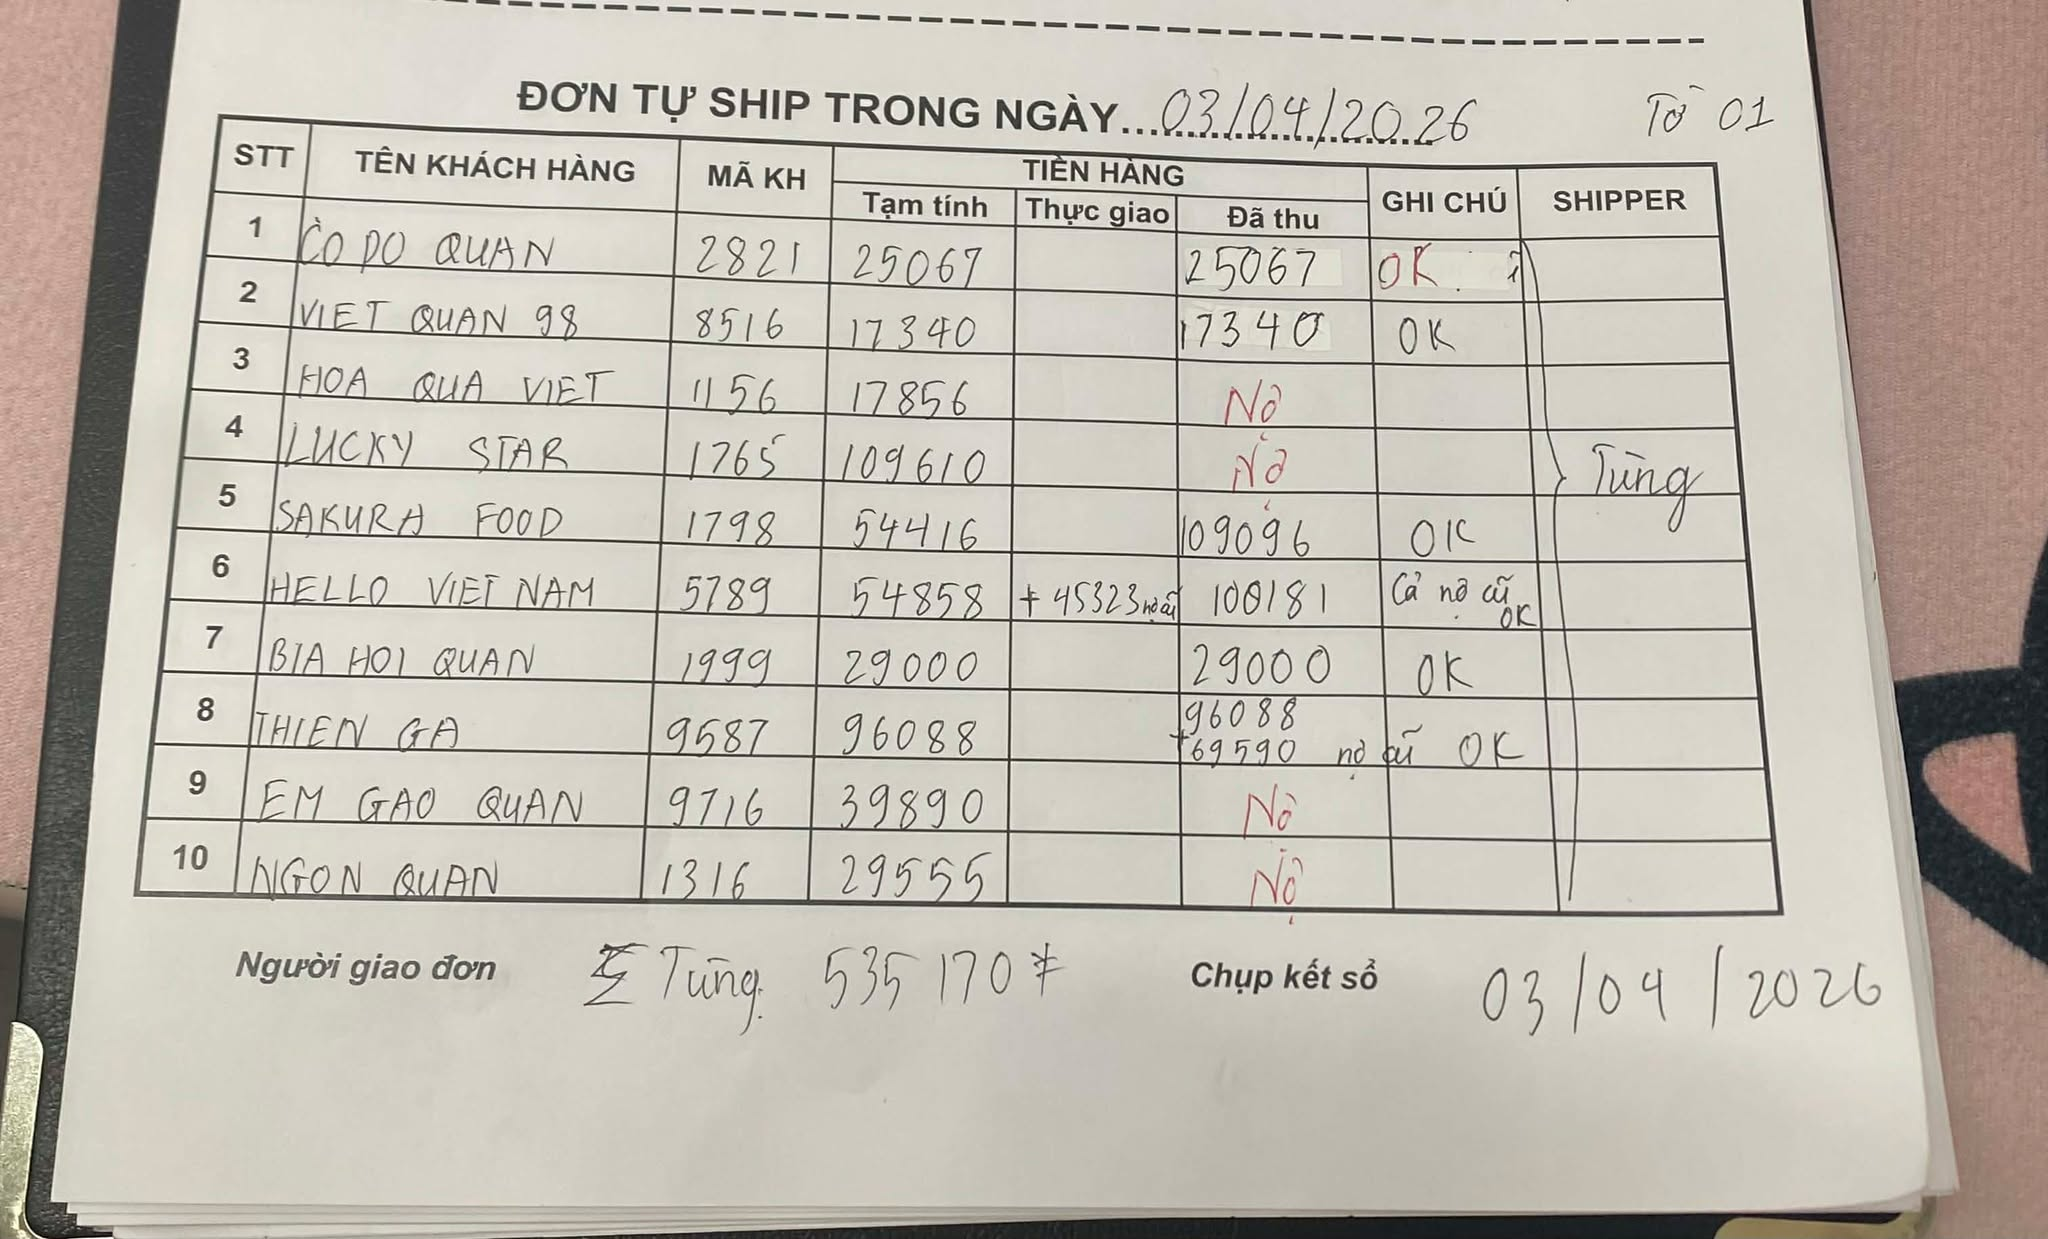 ĐƠN TỰ SHIP TRONG NGÀY.....03/04/2026 Tờ 01
STT TÊN KHÁCH HÀNG MÃ KH TIỀN HÀNG GHI CHÚ SHIPPER
Tạm tính Thực giao Đã thu
1 CO DO QUAN 2821 25067 25067 OK
2 VIET QUAN 98 8516 17340 17340 OK
3 HOA QUA VIET 1156 17856 Nợ
4 LUCKY STAR 1765 109610 Nợ Tùng
5 SAKURA FOOD 1798 54416 109096 OK
6 HELLO VIET NAM 5789 54858 + 45323 nợ cũ 100181 Cả nợ cũ OK
7 BIA HOI QUAN 1999 29000 29000 OK
8 THIEN GA 9587 96088 96088 +69590 nợ cũ OK
9 EM GAO QUAN 9716 39890 Nợ
10 NGON QUAN 1316 29555 Nợ
Người giao đơn Σ Tùng. 535170 Chụp kết sổ 03/04/2026